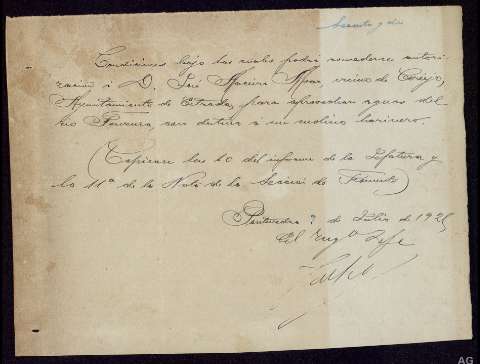 Condiciones bajo las cuales podrá concederse autori-
zación á D. José Maceira Mato, vecino de Cereijo,
Ayuntamiento de Estrada, para aprovechar aguas del
río con destino á un molino harinero.
(Cópiense las 10 del informe de la Jefatura y
la 11ª de la Nota de la Sección de Fomento)
Pontevedra 7 de Julio de 192
El Ingº Jefe
AG